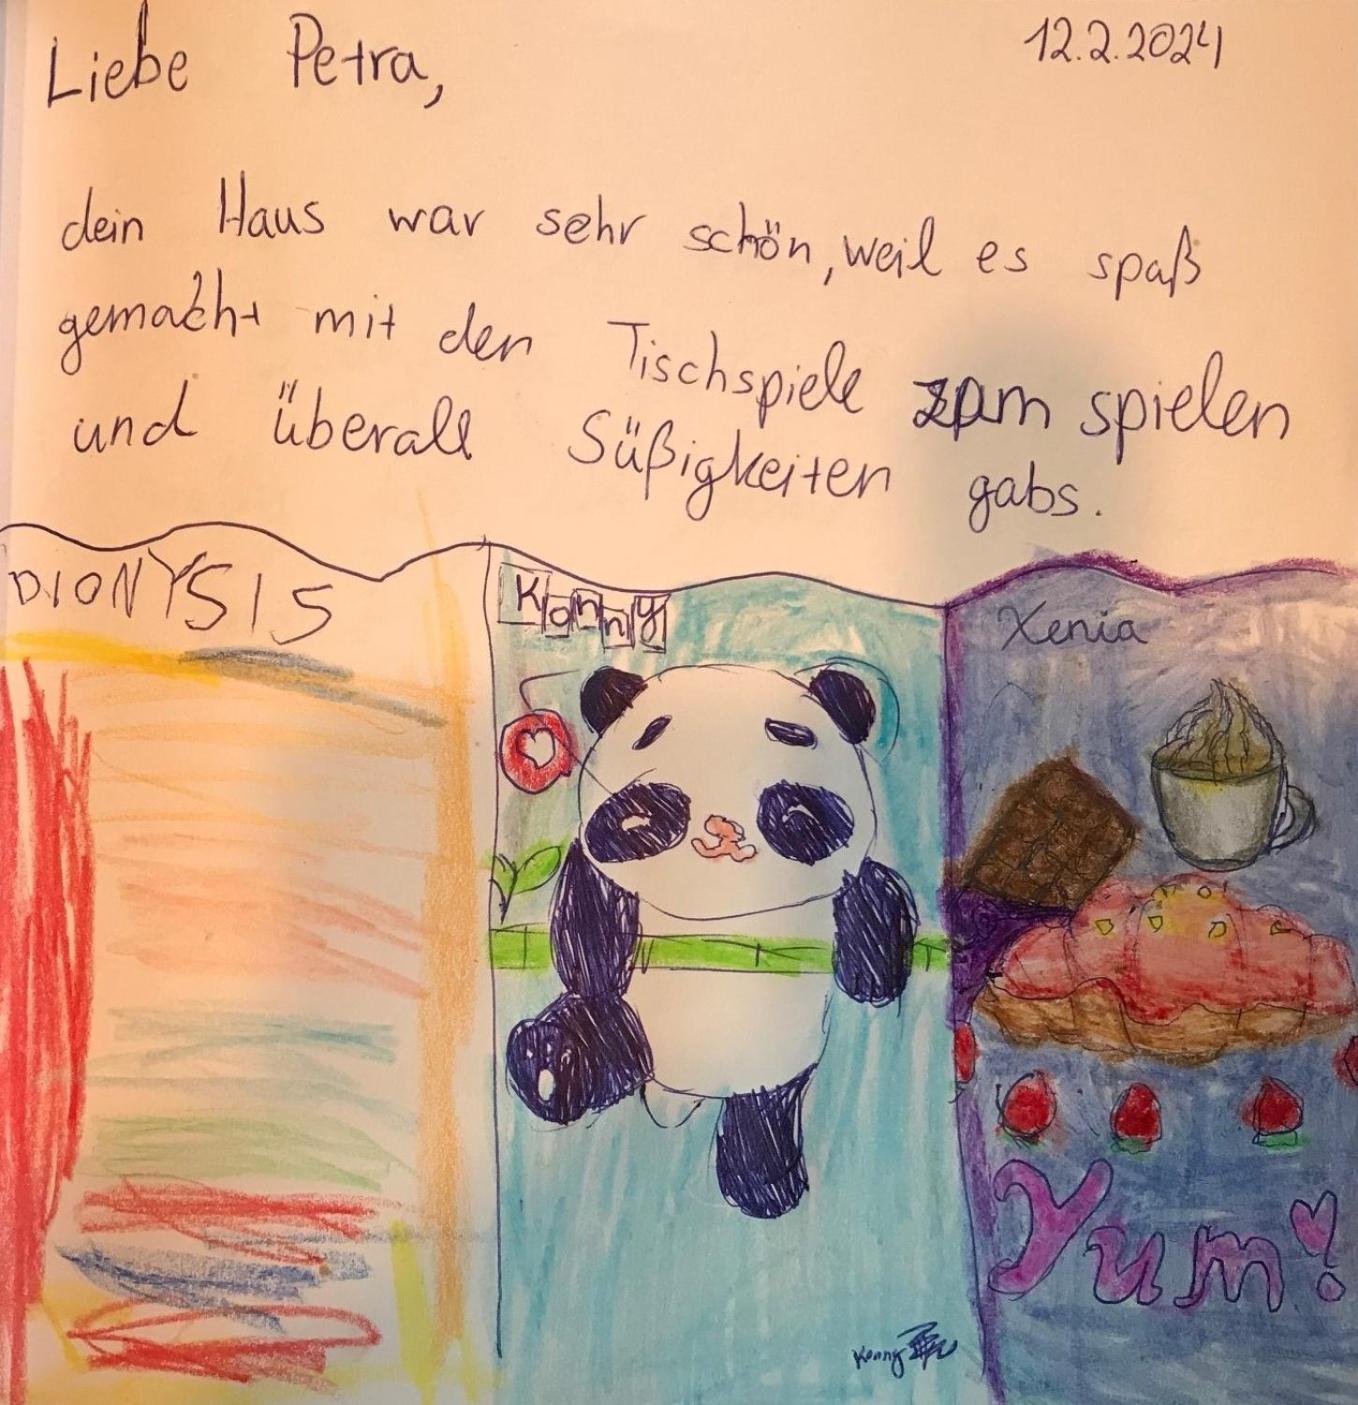 Liebe Petra,
12.2.2024
dein Haus war sehr schön, weil es spaß
gemacht mit den Tischspiele zum spielen
und überall Süßigkeiten gabs.
DIONYSIS
Konny
Xenia
Yum!
Konny